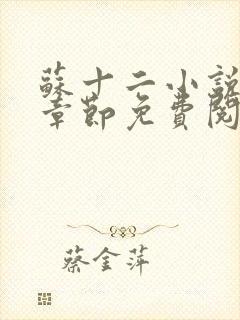 蘇十二小說
章節免費閱
蔡金萍